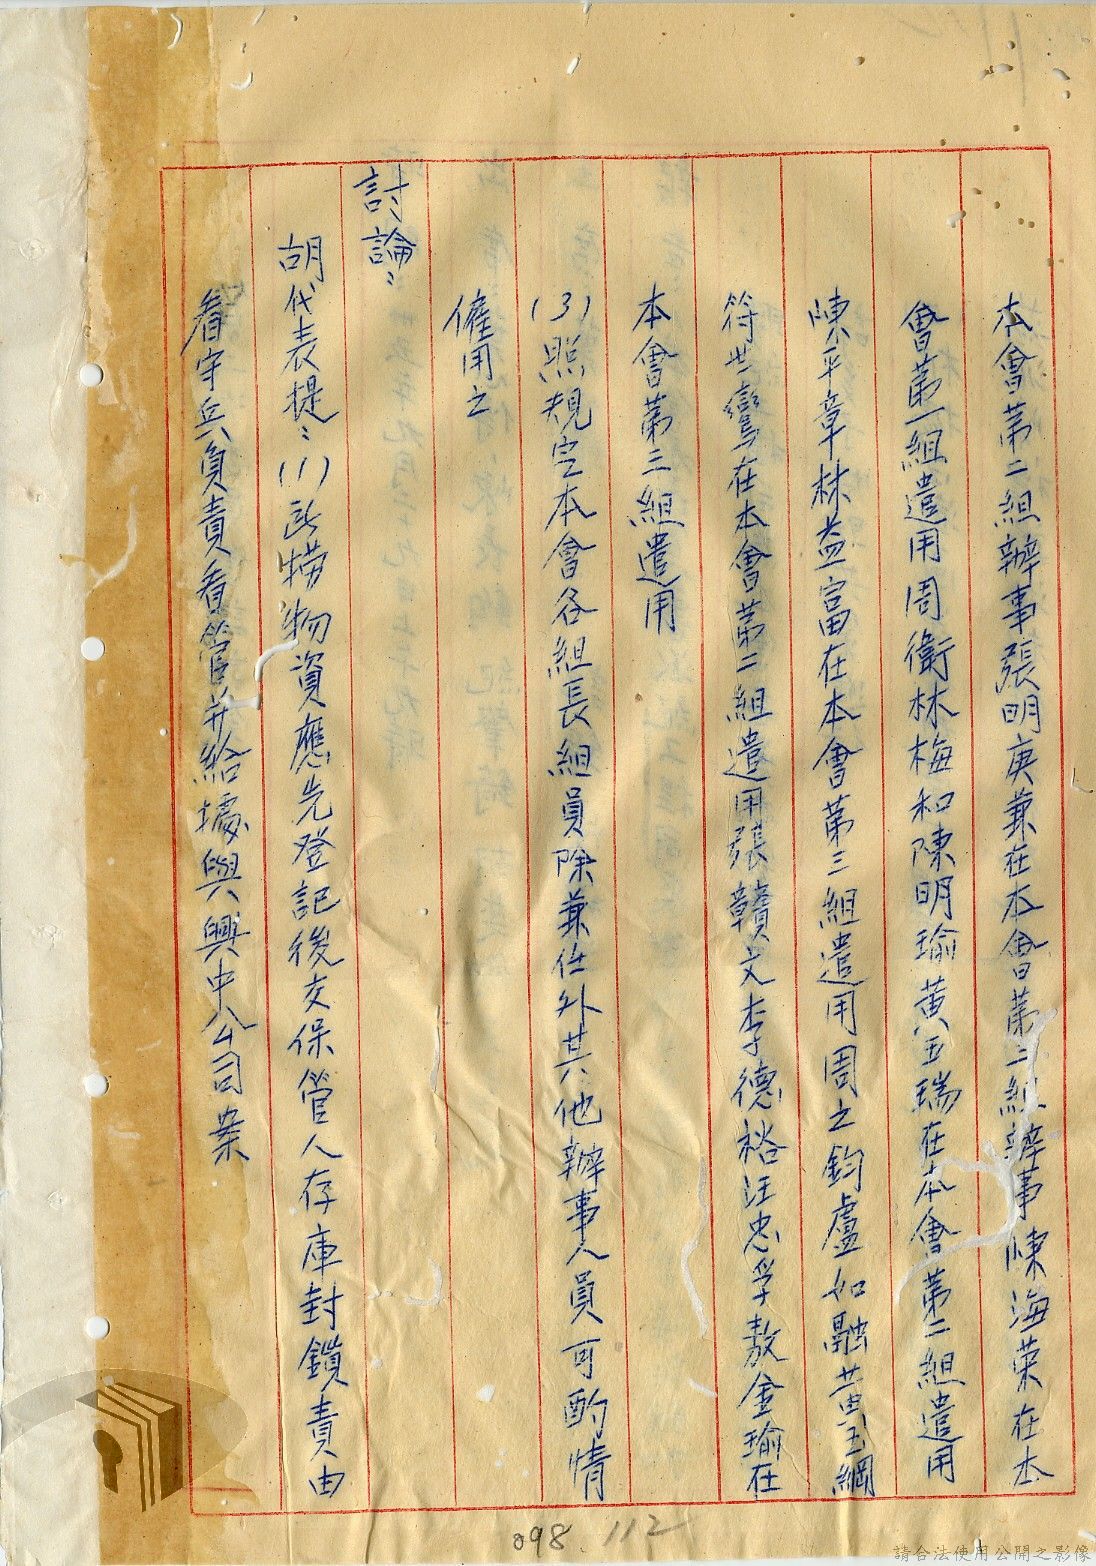 本會第二組辦事張明庚兼在本會第二組辦事陳海榮在本
會第一組遣用周衛林梅和陳明瑜黃玉瑞在本會第二組遣用
陳平章林益富在本會第三組遣用周之鈞盧如融黃玉綱
符世鸞在本會第二組遣用張贛文李德裕汪忠孚敖金瑜在
本會第三組遣用
(3)照規定本會各組長組員除兼任外其他辦事人員可酌情
僱用之
討論：
胡代表提：(1)所撈物資應先登記後交保管人存庫封鎖責由
看守兵負責看管并給據與興中公司案
098 112
請合法使用公開之影像